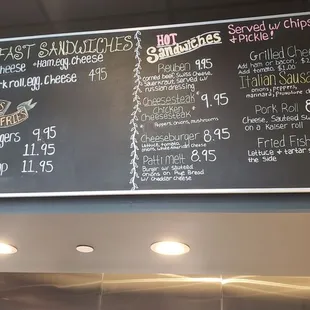 FAST SANDWICHES
Cheese Ham, Egg, Cheese
rk roll, egg, Cheese 4.95
FRIES
gers 9.95
11.95
p 11.95
HOT
Sandwiches
Reuben 9.95
corned beef, Swiss Cheese,
Sauerkraut served w/
russian dressing
Cheesesteak 9.95
Chicken
Cheesesteak
Peppers, onions, mushrooms
Cheeseburger 8.95
Lettuce, tomato,
onions, white American cheese
Patti Melt 8.95
Burger w/ sauteed
onions on Rye Bread
w/ cheddar cheese
Served w/ Chips
& Pickle!
Grilled Chee
Add ham or bacon, $2.
Add tomato $1.00
Italian Sausa
onions, peppers,
marinara, Provolone cheese
Pork Roll 8
Cheese, Sauteed
on a Kaiser roll
Fried Fish
Lettuce & tartar s
the Side